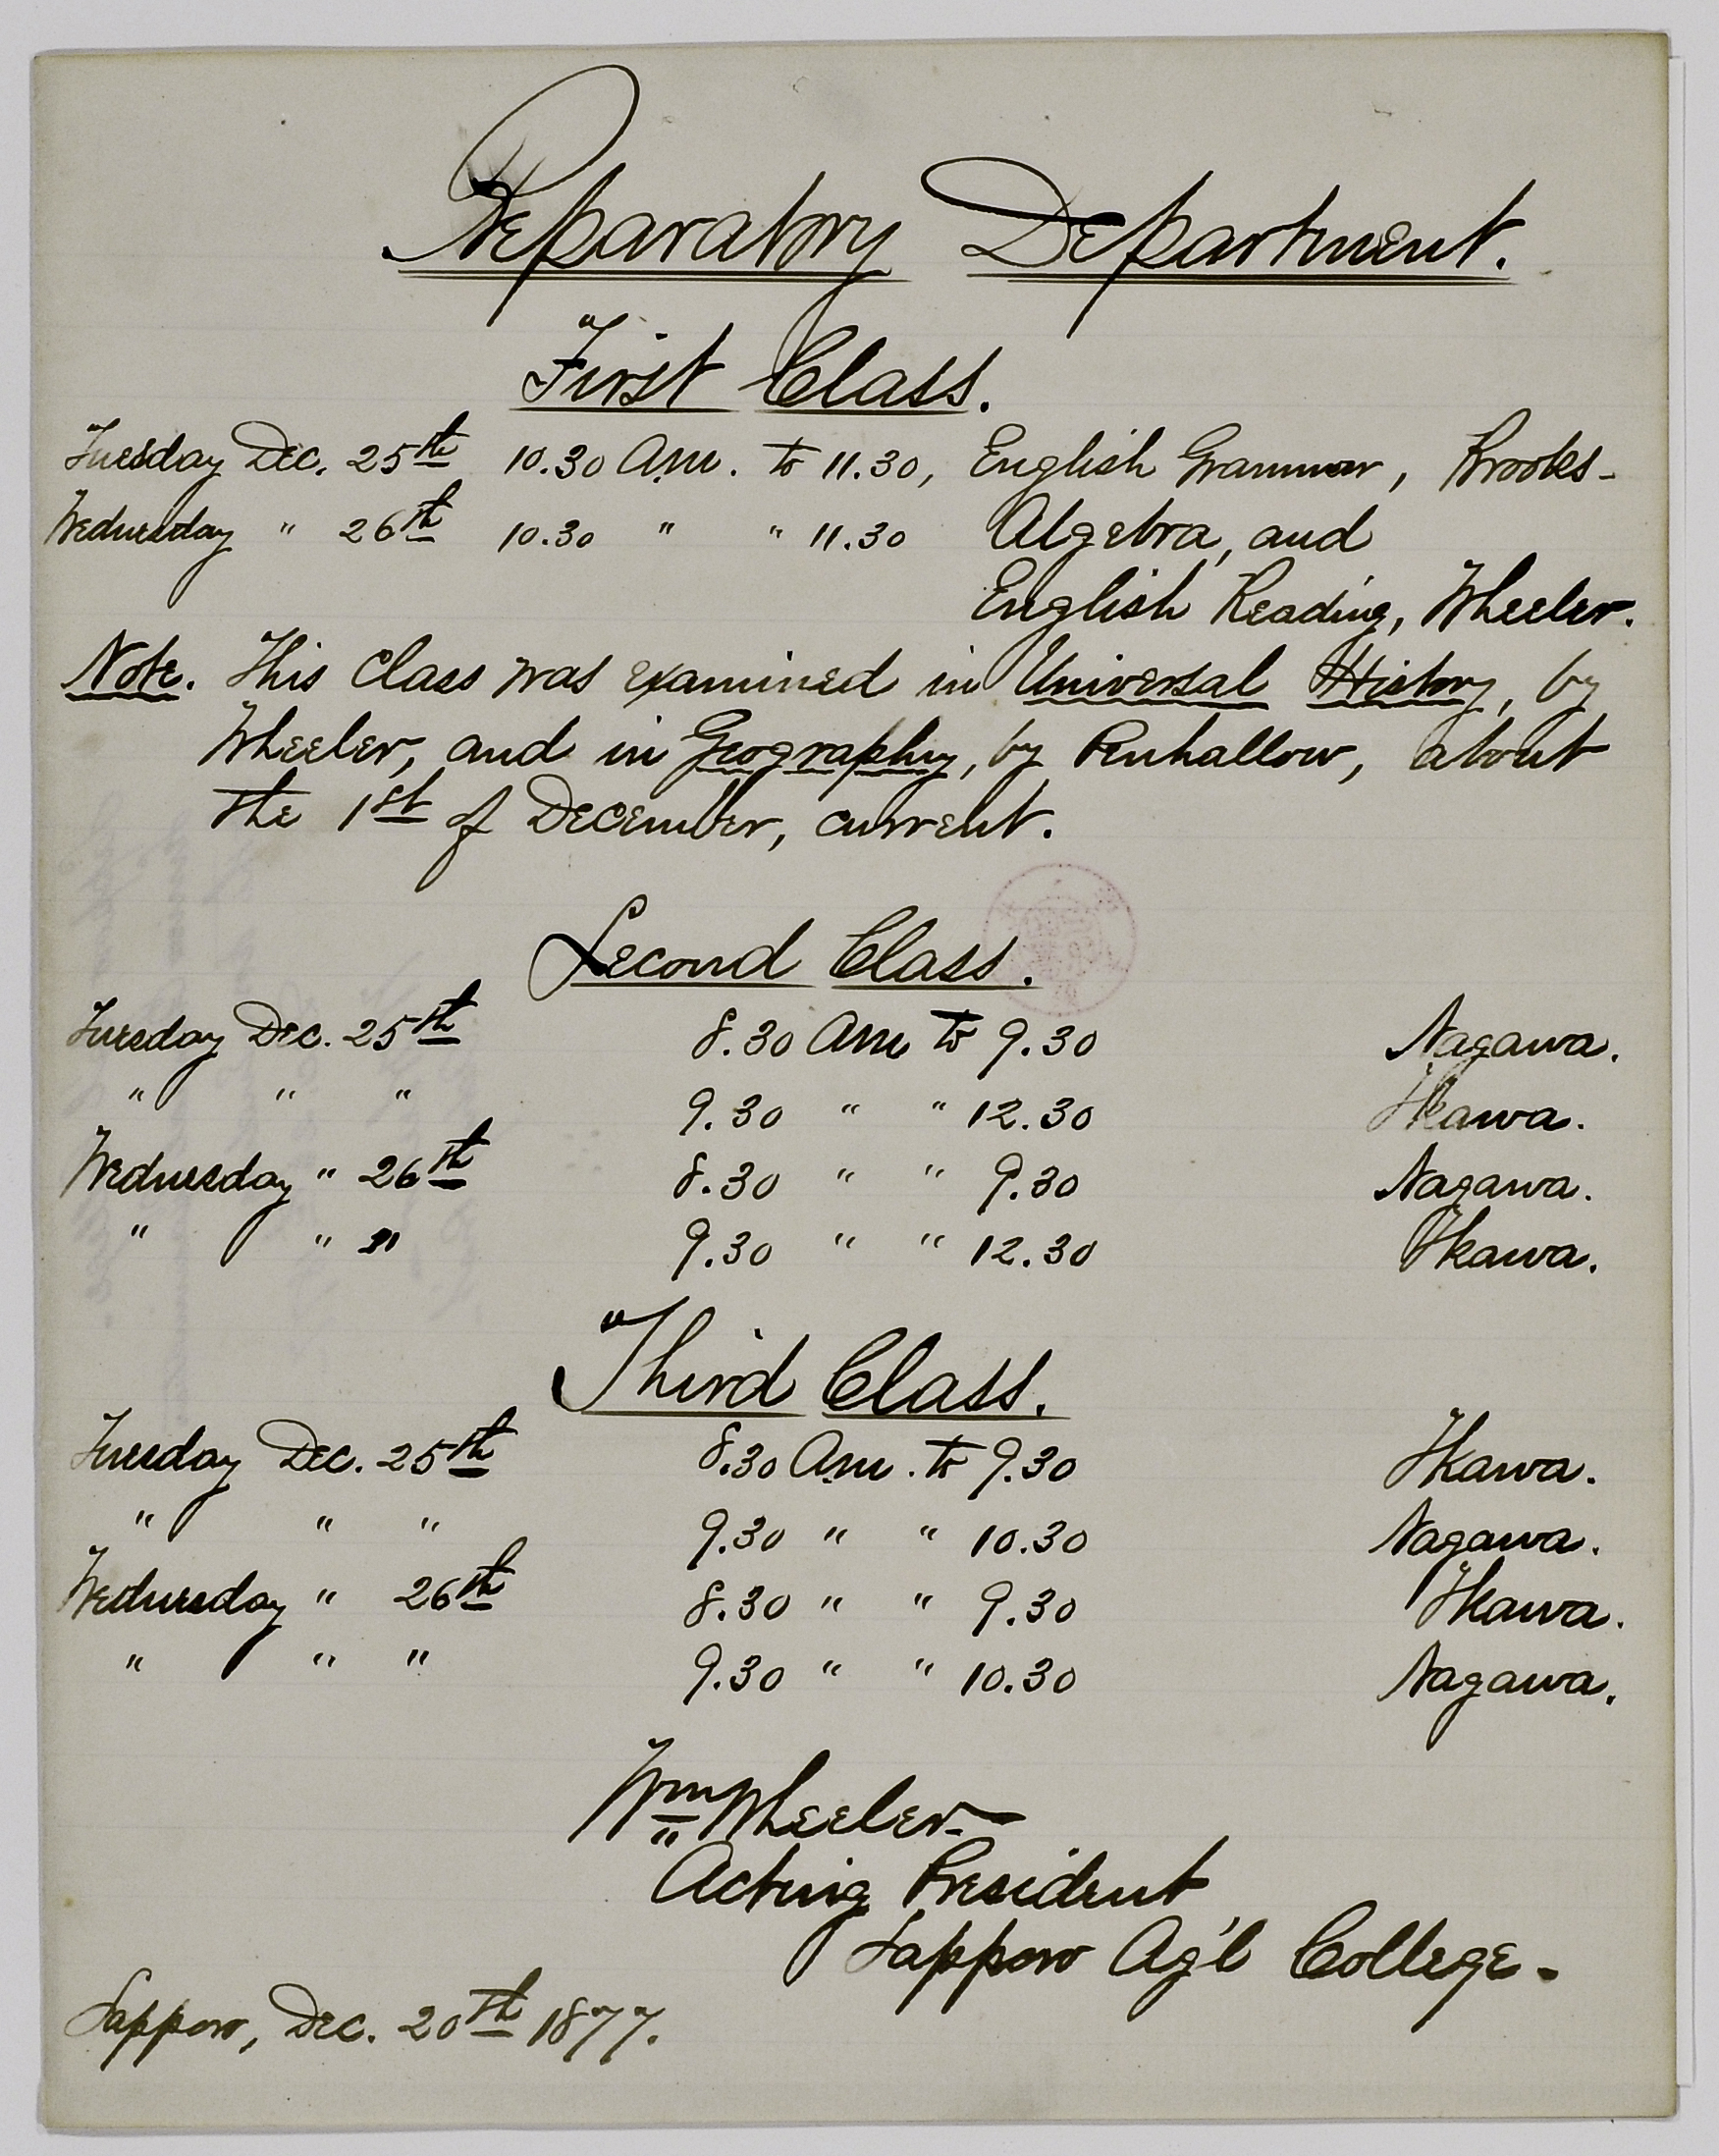 Preparatory Department.
First Class.
Tuesday Dec. 25th 10.30 Am. to 11.30, English Grammar, Brooks-
Wednesday " 26th 10.30 " " 11.30 Algebra, and
English Reading, Wheeler.
Note. This Class was examined in Universal History, by
Wheeler, and in Geography, by Penhallow, about
the 1st of December, current.
Second Class.
Tuesday Dec. 25th 8.30 Am to 9.30 Nagawa.
" " " 9.30 " " 12.30 Ikawa.
Wednesday " 26th 8.30 " " 9.30 Nagawa.
" " " 9.30 " " 12.30 Ikawa.
Third Class.
Tuesday Dec. 25th 8.30 Am. to 9.30 Ikawa.
" " " 9.30 " " 10.30 Nagawa.
Wednesday " 26th 8.30 " " 9.30 Ikawa.
" " " 9.30 " " 10.30 Nagawa.
Wm Wheeler
Acting President
Sapporo Ag'l College-
Sapporo, Dec. 20th 1877.